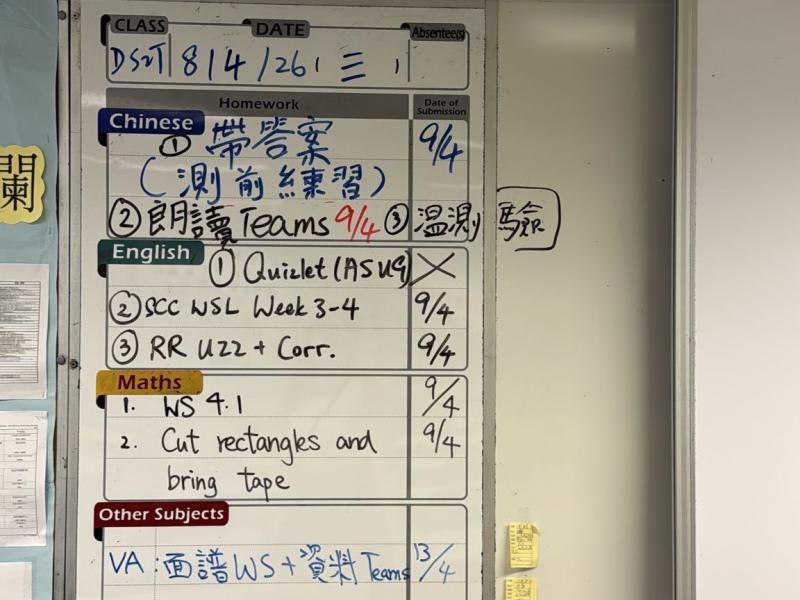 CLASS DATE Absentee(s)
DS2T 8/4/26 三
Homework Date of Submission
Chinese
① 帶答案 9/4
(測前練習)
② 朗讀 Teams 9/4 ③ 温測驗
English
① Quizlet (AS U9)
② SCC WSL Week 3-4 9/4
③ RR U22 + Corr. 9/4
Maths
1. WS 4.1 9/4
2. Cut rectangles and 9/4
bring tape
Other Subjects
VA: 面譜 WS + 資料 Teams 13/4
欄